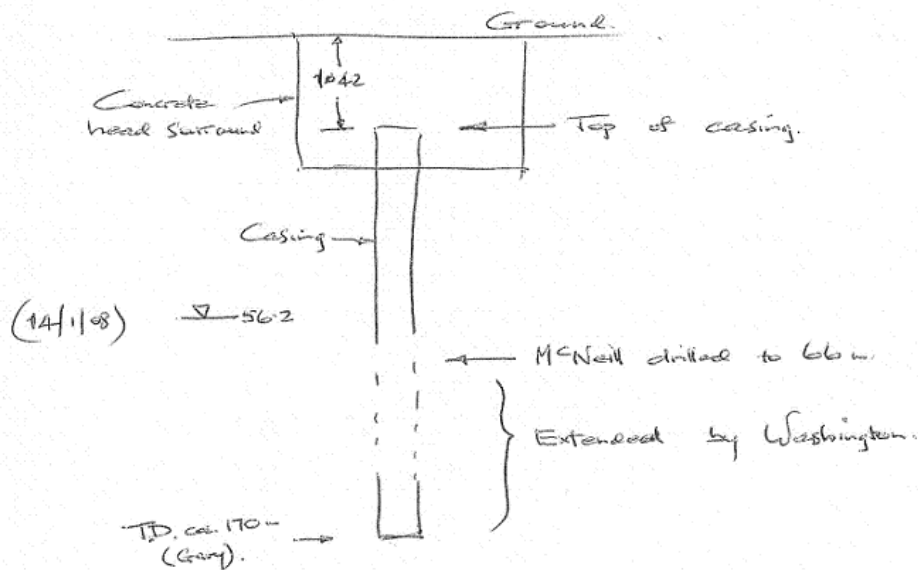 Ground.
1.042
Concrete
head surround
Top of casing.
Casing
(14/1/08)
56.2
McNeill drilled to 66 m.
Extended by Washington.
T.D. ca. 170 m
(Gary).